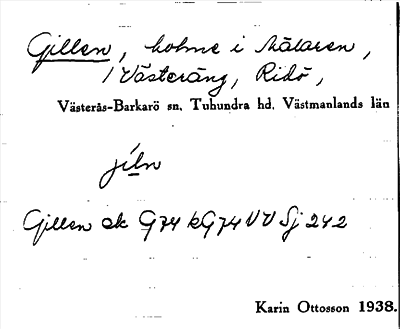 Gillen, holme i Mälaren,
/ Västeräng, Ridö,
Västerås-Barkarö sn. Tuhundra hd. Västmanlands län
jiln
Gillen ek G74 kG74 VV Sj 242
Karin Ottosson 1938.